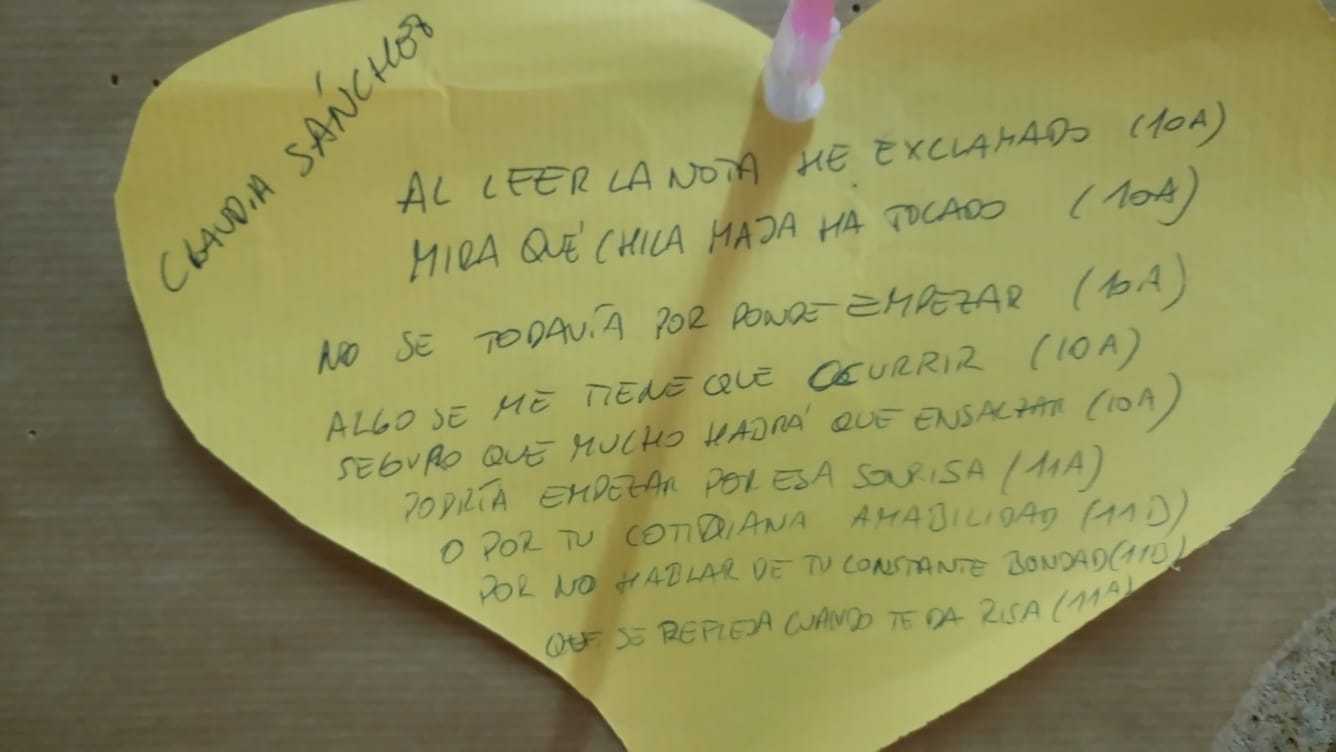 CLAUDIA SÁNCHEZ
AL LEER LA NOTA HE EXCLAMADO (10A)
MIRA QUÉ CHICA MAJA HA TOCADO (10A)
NO SE TODAVÍA POR DONDE EMPEZAR (10A)
ALGO SE ME TIENE QUE OCURRIR (10A)
SEGURO QUE MUCHO HABRÁ QUE ENSALZAR (10A)
PODRÍA EMPEZAR POR ESA SONRISA (11A)
O POR TU COTIDIANA AMABILIDAD (11B)
POR NO HABLAR DE TU CONSTANTE BONDAD (11B)
QUE SE REFLEJA CUANDO TE DA RISA (11A)